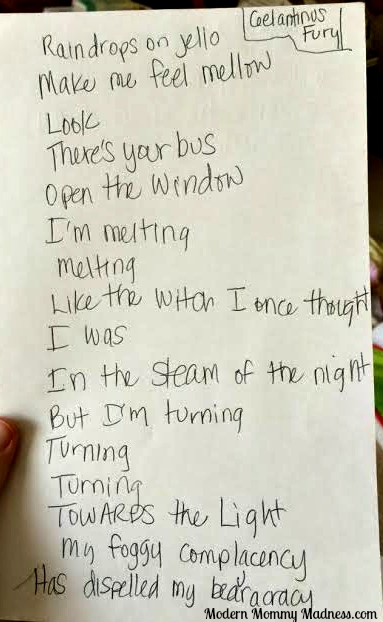 Coelantinus
Fury
Raindrops on jello
Make me feel mellow
Look
There's your bus
Open the window
I'm melting
melting
Like the witch I once thought
I was
In the steam of the night
But I'm turning
Turning
Turning
TOWARDS the Light
My foggy complacency
Has dispelled my bearacracy
Modern Mommy Madness.com